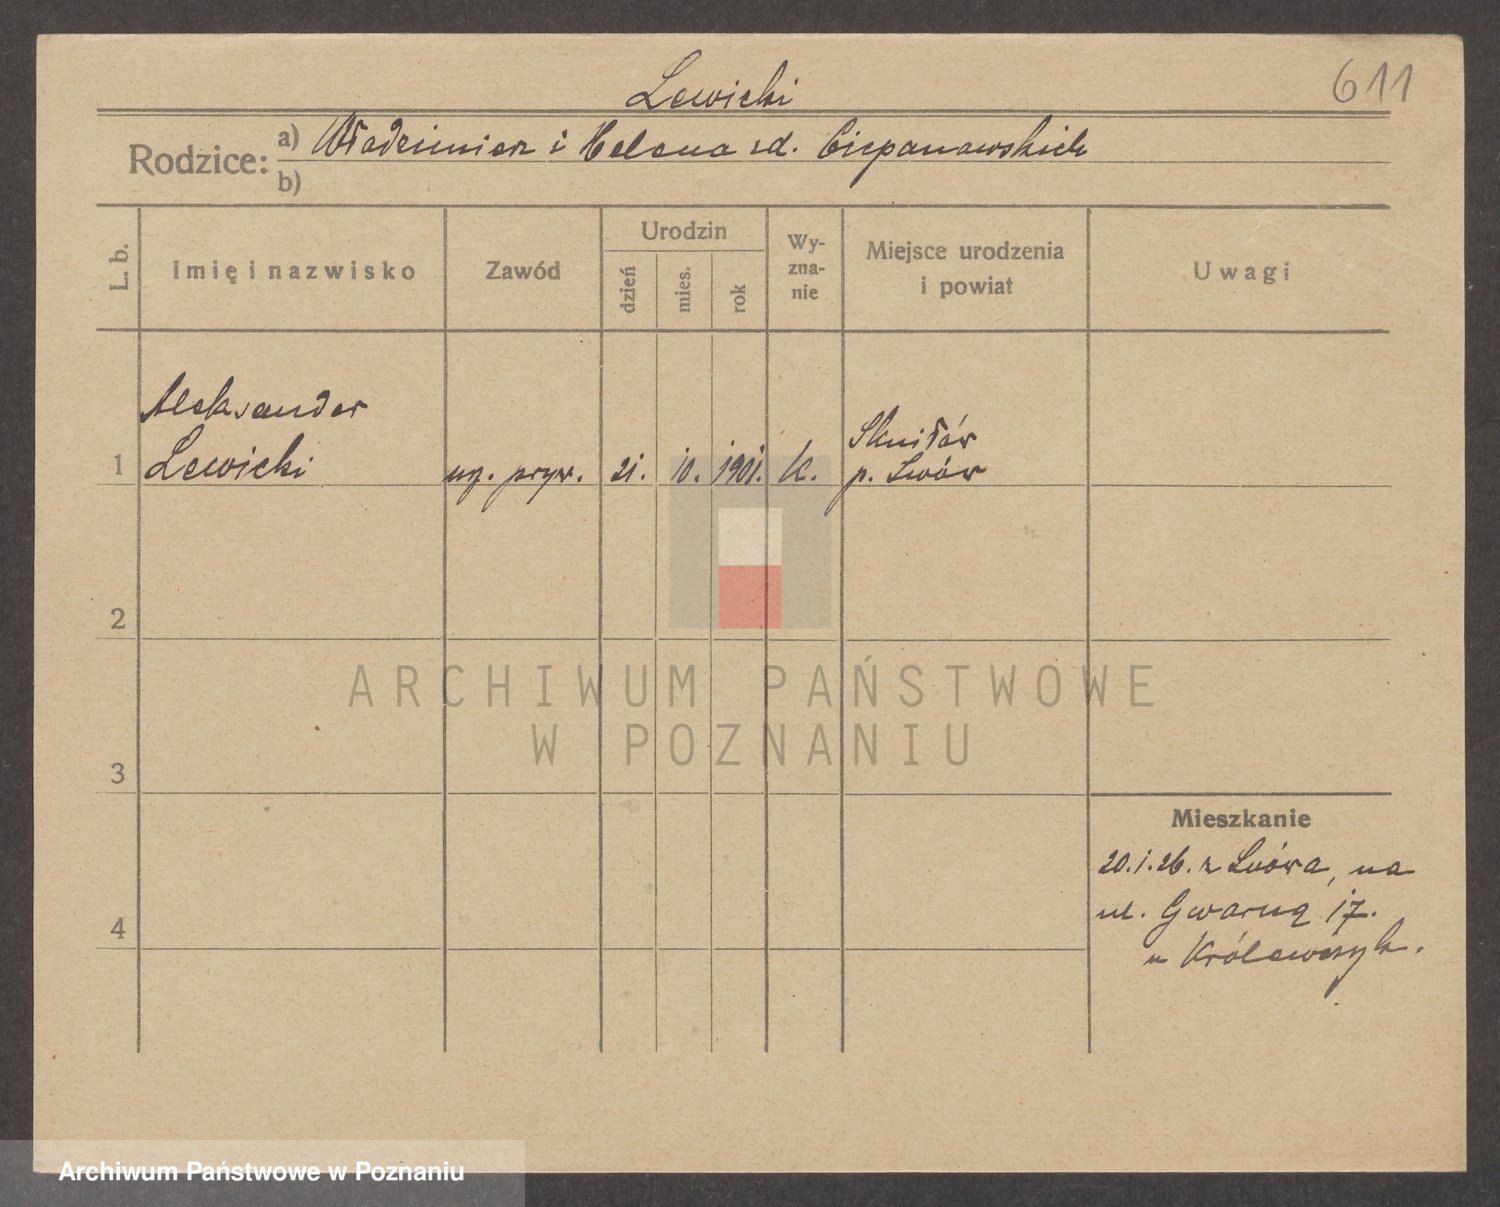 611
Lewicki
Rodzice: a) Włodzimierz i Helena zd. Ciepanowskich
b)
L. b.
Imię i nazwisko
Zawód
Urodzin
dzień
mies.
rok
Wy-
zna-
nie
Miejsce urodzenia
i powiat
Uwagi
Aleksander
1 Lewicki
urz. pryw.
21. 10. 1901. K.
Skniłów
p. Lwów
2
3
4
Mieszkanie
20.1.26. z Lwowa, na
ul. Gwarną 17.
u Królewczyk.
ARCHIWUM PAŃSTWOWE
W POZNANIU
Archiwum Państwowe w Poznaniu